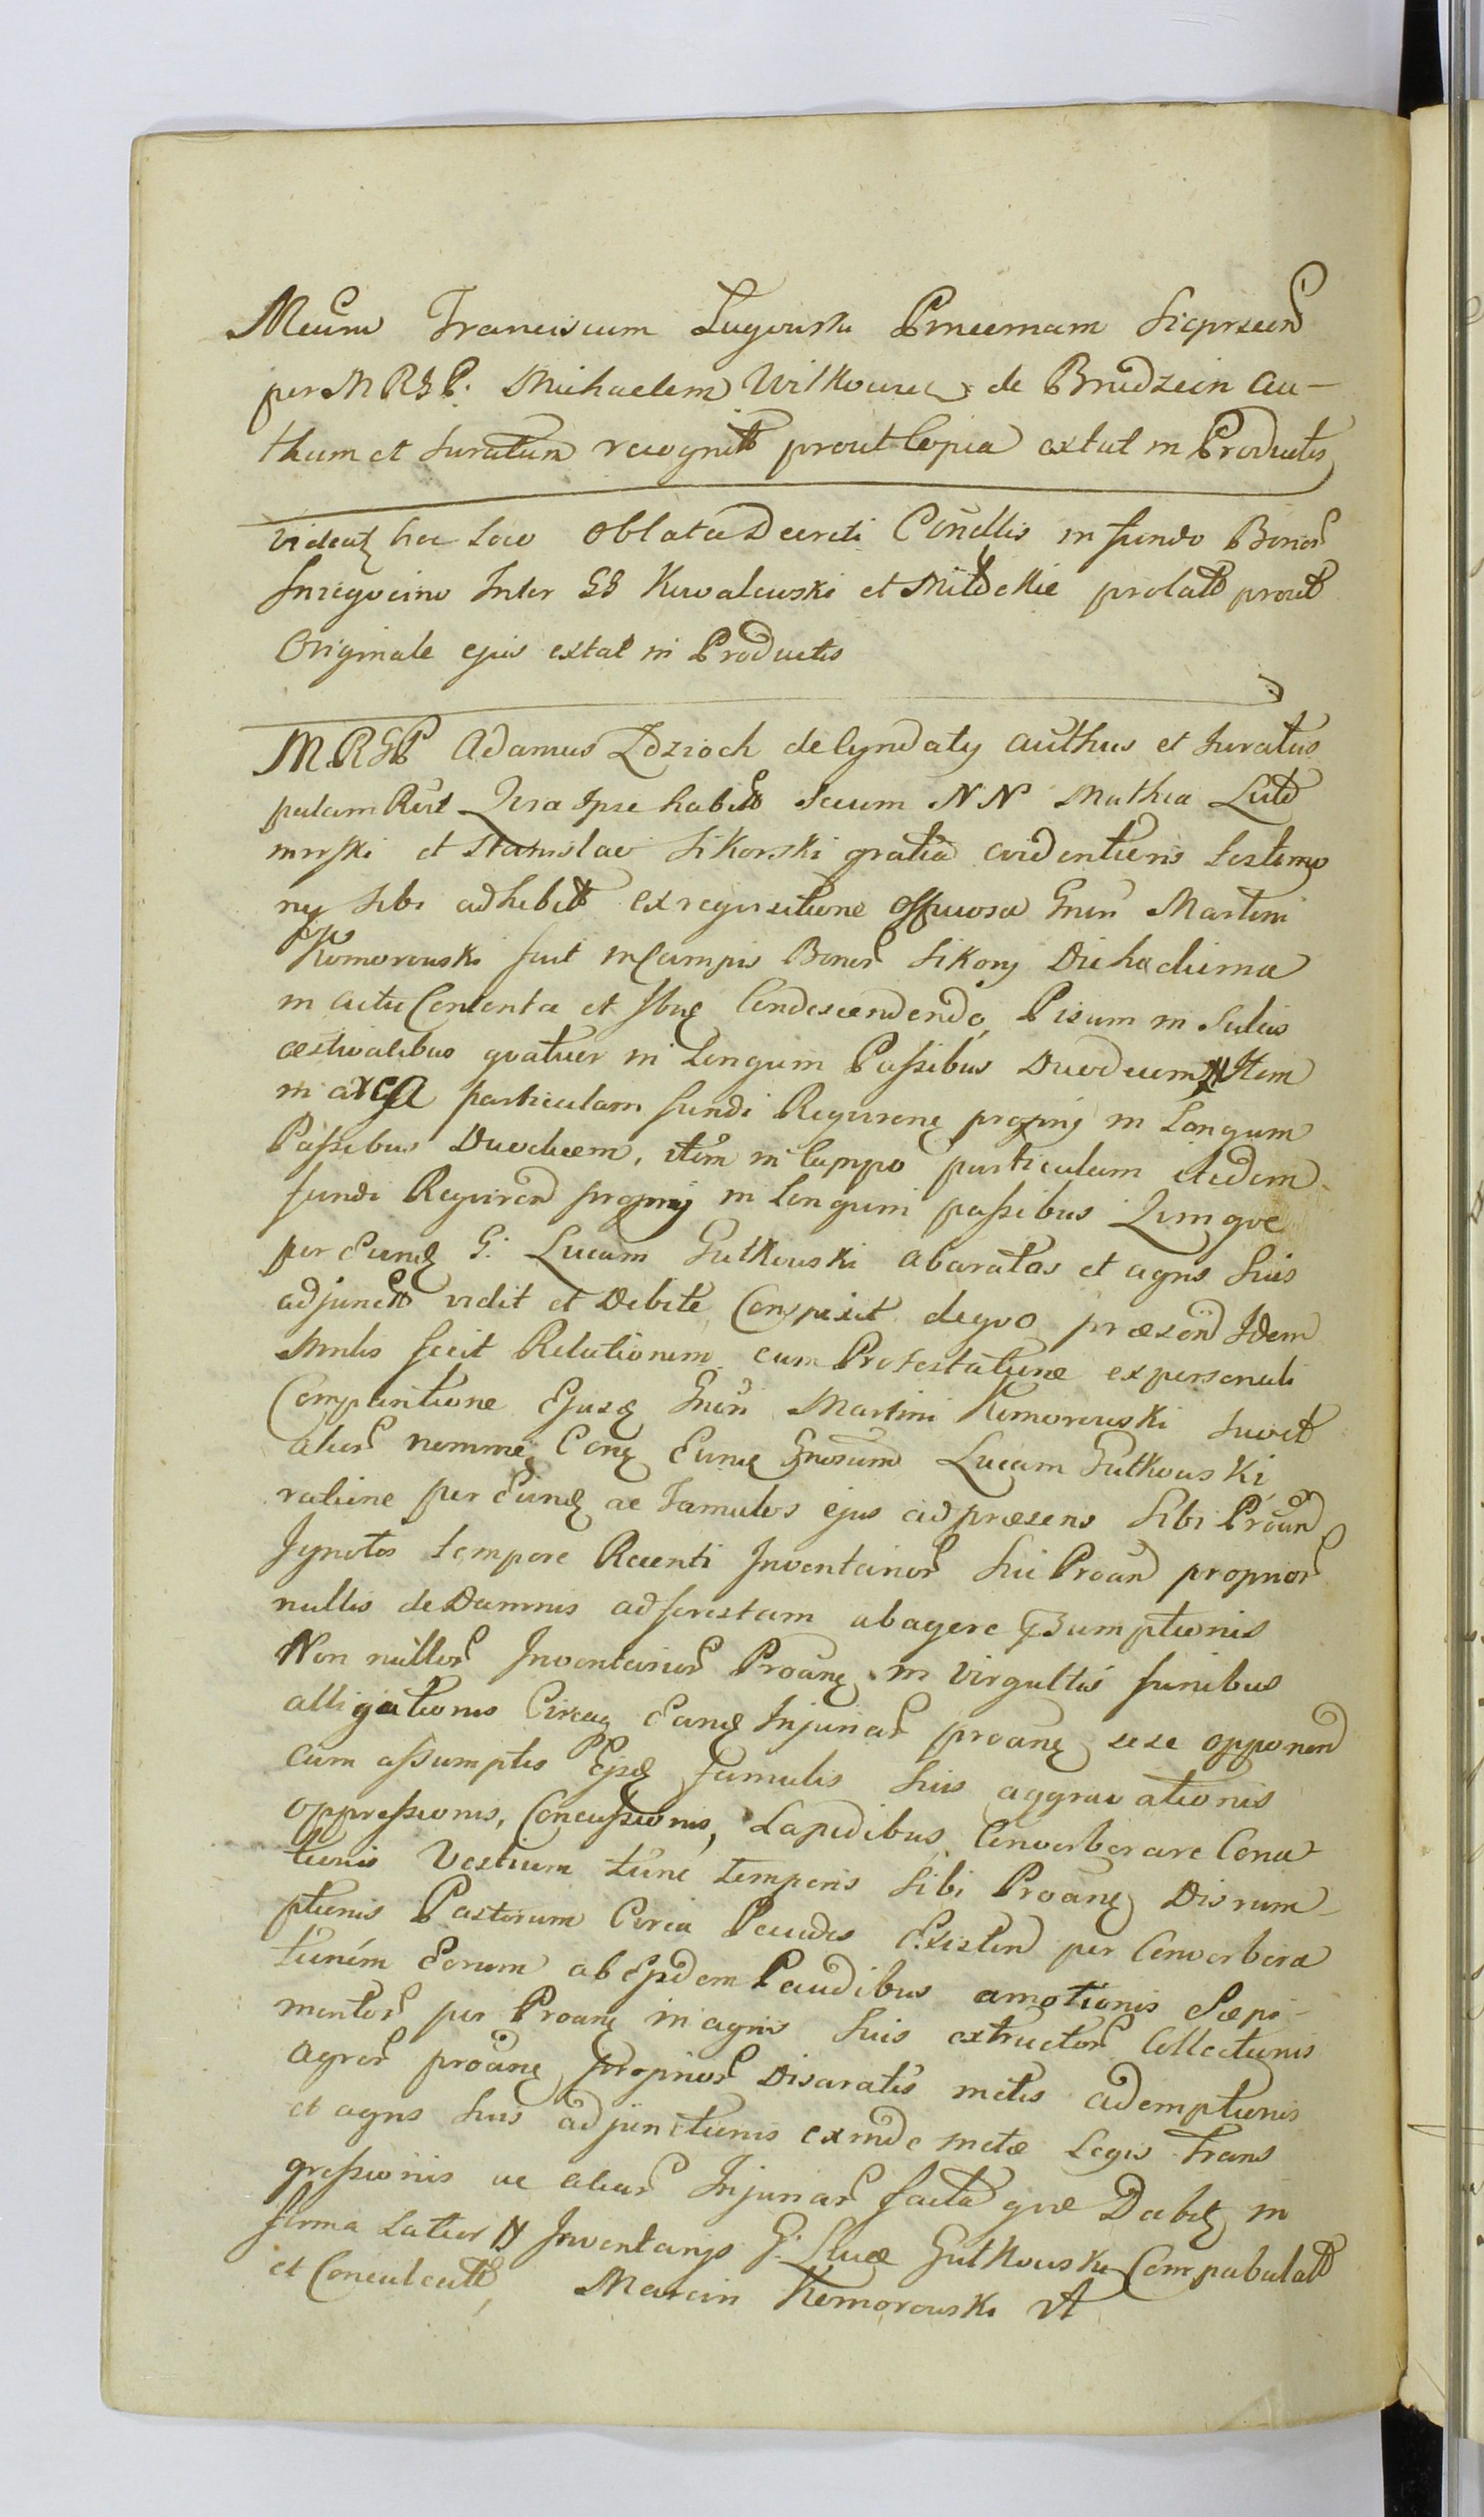 Meum Franciscum Lugowski Pincernam Sieprscen
per MRGP. Michaelem Wilkowicz de Brudzein Au-
thum et Juratum recognitt prout Copia extat in Productis
videatz hoc Loco Oblata Decreti Condlis in fundo Bonor
Sniegocino Inter GG Kowalewski et Mitdellie prolatt prout
Originale ejus extat in Productis
MRGP Adamus Zdzioch de Cyndaty Authus et Juratus
palam Rect Qria Ipse habitt Secum NN Mathia Luto
mirski et Stanislao Sikorski gratia evidentioris testimo
ny sibi adhibitt ex requisitione Offuiosa Gnsi Martini
Komorowski fuit in Campis Bonor Sikory Die hodierna
in actu Contenta et Ibiq Condescendendo, Pisum in Sulcis
aestivalibus quatuor in Longum Passibus Duodecim Item
in area particulam fundi Requirenq proprij in Longum
Passibus Duodecem, item in Campo particulam itidem
fundi Requirend proprij in Longum passibus Quinque
per Eundq G. Lucam Gutkowski abaratas et agris Suis
adjunctt vidit et Debite Conspexit dequo praesend Idem
Mnlis fecit Relationem cum Protestatione ex personali
Comparitione Ejusq Gnsi Martini Komorowski suo et
alior nomine Conq Eunq Gnosum Lucam Gutkowski
ratione per Eunq ac Famulos ejus ad praesens Sibi Proan
Ignotos tempore Recenti Inventarior Sui Proan proprior
nullis de Damnis ad forestam ab agere praesumptionis
Non nullor Inventarior Proanq in virgultis funibus
alligationis Circaq Eanq Injuriar proanq sese opponend
cum assumptis Ejsq famulis Suis aggravationis
oppressionis, Concussionis, Lapidibus Converberare Cona
tionis Vestium tunc temporis Sibi Proanq Disrum-
ptionis Pastorum Circa Pecudes Existend per Converbera
tionem Eorum ab Ejsdem Pecudibus amotionis Saepi-
mentor per Proanq in agris Suis extructor Collectionis
Agror proanq proprior Disaratis metis ademptionis
et agris Suis adjunctionis exinde metae Legis Trans
gressionis ac aliar Injuriar facta que Debitq in
forma Latior N Inventarijs G. Lucae Gutkowski Compabulatt
et Conculcatt, Marcin Komorowski